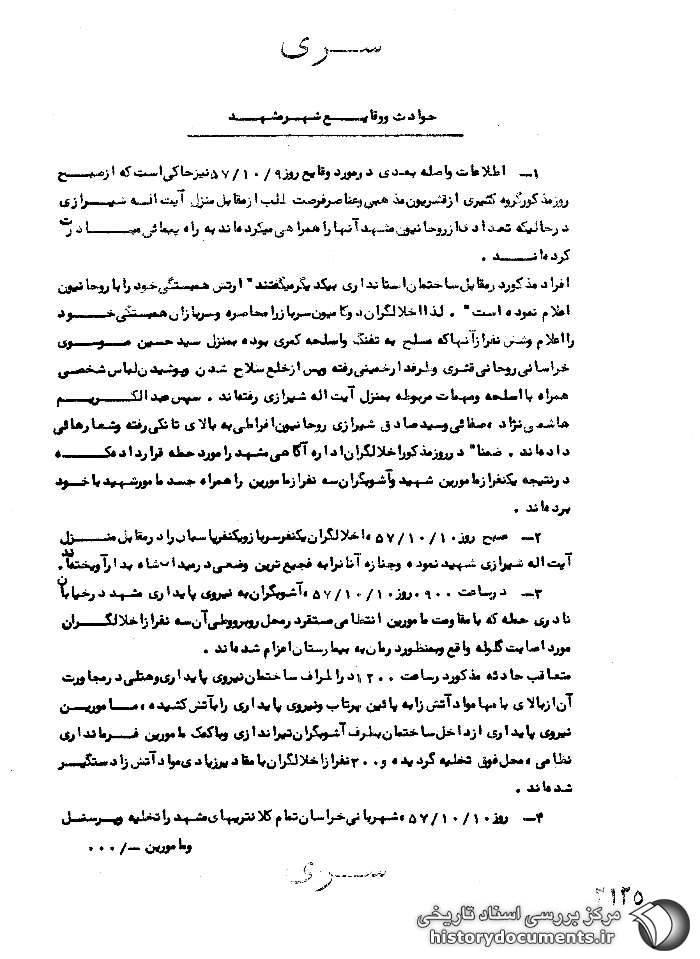 سری
حوادث ووقایع شهرمشهد
۱ــ اطلاعات واصله بعدی درمورد وقایع روز ۵۷/۱۰/۹ نیزحاکی است که ازصبح
روزمذکورگروه کثیری ازقشریون مذهبی وعناصرفرصت طلب ازمقابل منزل آیت اله شیرازی
درحالیکه تعدادی ازروحانیون مشهد آنها را همراهی میکرده‌اند به راه پیمائی مبادرت
کرده‌اند .
افراد مذکوردرمقابل ساختمان استانداری بیکدیگرمیگفتند" ارتش همبستگی خود را با روحانیون
اعلام نموده است" . لذا اخلالگران دوکامیون سربازرا محاصره وسربازان همبستگی خود
را اعلام وشش نفرازآنهاکه مسلح به تفنگ واسلحه کمری بوده بمنزل سید حسین موسوی
خراسانی روحانی قشری وطرفدارخمینی رفته وپس ازخلع سلاح شدن وپوشیدن لباس شخصی
همراه با اسلحه ومهمات مربوطه بمنزل آیت اله شیرازی رفته‌اند . سپس عبدالکریم
هاشمی نژاد ،صفائی وسید صادق شیرازی روحانیون افراطی به بالای تانکی رفته وشعارهائی
داده‌اند . ضمنا" درروزمذکوراخلالگران اداره آگاهی مشهد را مورد حمله قرارداده‌که
درنتیجه یکنفرازمامورین شهید وآشوبگران سه نفرازمامورین را همراه جسد مامورشهید با خود
برده‌اند .
۲ــ صبح روز ۵۷/۱۰/۱۰ ،اخلالگران یکنفرسربازویکنفرپاسبان را درمقابل منزل
آیت اله شیرازی شهید نموده وجنازه آنانرابه فجیع ترین وضعی درمیدان شاه بدارآویختند.
۳ــ درساعت ۰۹۰۰ روز ۵۷/۱۰/۱۰ ،آشوبگران به نیروی پایداری مشهد درخیابان
نادری حمله که با مقاومت مامورین انتظامی مستقردرمحل روبرووطی آن سه نفرازاخلالگران
مورد اصابت گلوله واقع وبمنظوردرمان به بیمارستان اعزام شده‌اند .
متعاقب حادثه مذکوردرساعت ۱۲۰۰ دراطراف ساختمان نیروی پایداری وهتلی درمجاورت
آن ازبالای بامها مواد آتش زا به پائین پرتاب ونیروی پایداری را بآتش کشیده ،مامورین
نیروی پایداری ازداخل ساختمان بطرف آشوبگران تیراندازی وباکمک مامورین فرمانداری
نظامی ،محل فوق تخلیه گردیده و۲۰۰ نفرازاخلالگران با مقادیرزیادی مواد آتش زا دستگیر
شده‌اند .
۴ــ روز ۵۷/۱۰/۱۰ ،شهربانی خراسان تمام کلانتریهای مشهد را تخلیه وپرسنل
ومامورین ــ/۰۰۰
سری
۱۳۵
مرکز بررسی اسناد تاریخی
historydocuments.ir